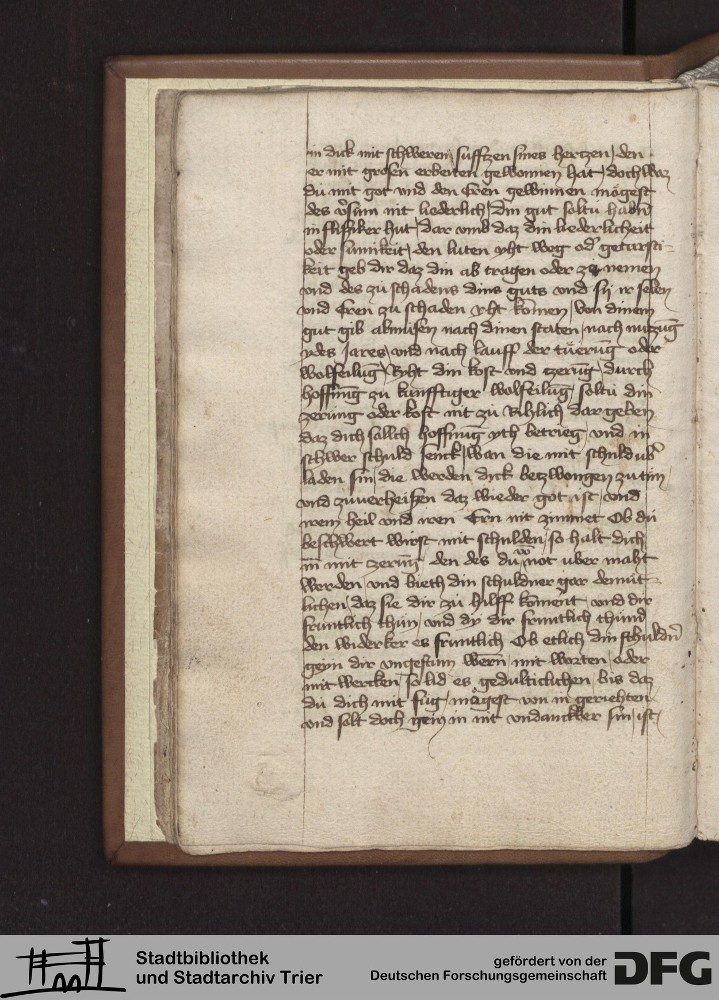 in dick mit schwerem suffzen sines hertzen / den
er mit grosen erbeiten gewonnen hat / doch waz
du mit got vnd den Eren gewinnen mögest
des v'sum nit liederlich / din gut soltu habñ
in flissiker hut / dar vmb daz din liederlicheit
oder sumikeit / den luten yht weg od' getursti=
keit geb dir daz din ab tragen oder zu nemen
vnd des zu schadens dins guts vnd sij ir selen
vnd Eren zu schaden yht komen / Von dinem
gut gib almusen nach dinen staten / nach
ydes Jares / vnd nach lauff der tuerūg oder
wolfeilūg / Ryht din kost vnd czerūg / durch
hoffnūg zu kunfftiger wolfeilūg / soltu din
zerung oder kost nit zu Richlich dar geben
daz dich sollich hoffnūg yth betrieg / vnd in
schwer schuld senck / wan die mit schuld ub'
laden sin / die werden dick betzwongen zu tun
vnd zuuerheissen daz wieder got ist / vnd
irem heil vnd iren Ern nit zimmet Ob du
beschwert wirst mit schulden / so halt dich
in mit zerūg den des du not uber maht
werden / vnd bieth din schuldner gar demut=
lichen / daz sie dir zu hilff koment / vnd dir
fruntlich thun / vnd dy dir fruntlich thund
den widerker es fruntlich Ob etlich din schuldn'
geyn dir vngestum wern / mit worten / oder
mit wercken / so lid es gedulticlichen / bis daz
du dich mit fug / mögest von in gerichten
vnd solt doch geyn in nit vndanckber sin / ist /
Stadtbibliothek
und Stadtarchiv Trier
gefördert von der
Deutschen Forschungsgemeinschaft
DFG